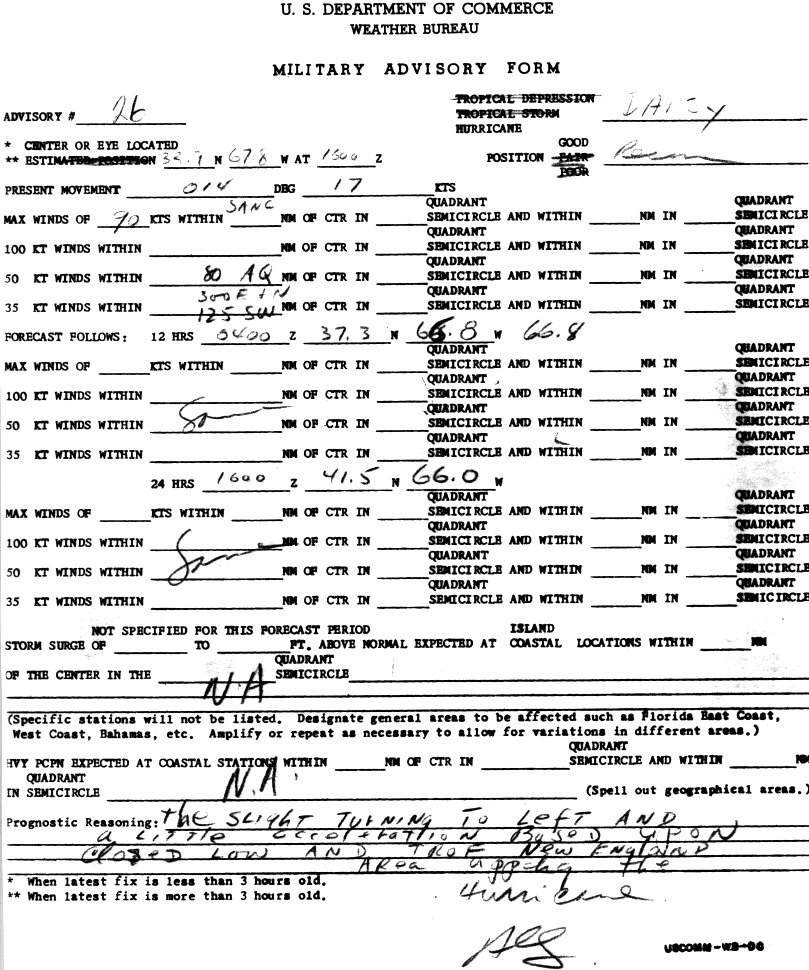 U. S. DEPARTMENT OF COMMERCE
WEATHER BUREAU
MILITARY ADVISORY FORM
TROPICAL DEPRESSION
ADVISORY # 26 TROPICAL STORM DAISY
HURRICANE
* CENTER OR EYE LOCATED GOOD
** ESTIMATED POSITION N 67.8 W AT 1600 Z POSITION FAIR
POOR
PRESENT MOVEMENT 014 DEG 17 KTS
SAME QUADRANT QUADRANT
MAX WINDS OF 90 KTS WITHIN NM OF CTR IN SEMICIRCLE AND WITHIN NM IN SEMICIRCLE
QUADRANT QUADRANT
100 KT WINDS WITHIN NM OF CTR IN SEMICIRCLE AND WITHIN NM IN SEMICIRCLE
QUADRANT QUADRANT
50 KT WINDS WITHIN 80 AQ NM OF CTR IN SEMICIRCLE AND WITHIN NM IN SEMICIRCLE
300 E + N QUADRANT QUADRANT
35 KT WINDS WITHIN 125 SW NM OF CTR IN SEMICIRCLE AND WITHIN NM IN SEMICIRCLE
FORECAST FOLLOWS: 12 HRS 0400 Z 37.3 N 66.8 W 66.8
QUADRANT QUADRANT
MAX WINDS OF KTS WITHIN NM OF CTR IN SEMICIRCLE AND WITHIN NM IN SEMICIRCLE
QUADRANT QUADRANT
100 KT WINDS WITHIN NM OF CTR IN SEMICIRCLE AND WITHIN NM IN SEMICIRCLE
QUADRANT QUADRANT
50 KT WINDS WITHIN Same NM OF CTR IN SEMICIRCLE AND WITHIN NM IN SEMICIRCLE
QUADRANT QUADRANT
35 KT WINDS WITHIN NM OF CTR IN SEMICIRCLE AND WITHIN NM IN SEMICIRCLE
24 HRS 1600 Z 41.5 N 66.0 W
QUADRANT QUADRANT
MAX WINDS OF KTS WITHIN NM OF CTR IN SEMICIRCLE AND WITHIN NM IN SEMICIRCLE
QUADRANT QUADRANT
100 KT WINDS WITHIN Same NM OF CTR IN SEMICIRCLE AND WITHIN NM IN SEMICIRCLE
QUADRANT QUADRANT
50 KT WINDS WITHIN NM OF CTR IN SEMICIRCLE AND WITHIN NM IN SEMICIRCLE
QUADRANT QUADRANT
35 KT WINDS WITHIN NM OF CTR IN SEMICIRCLE AND WITHIN NM IN SEMICIRCLE
NOT SPECIFIED FOR THIS FORECAST PERIOD ISLAND
STORM SURGE OF TO FT. ABOVE NORMAL EXPECTED AT COASTAL LOCATIONS WITHIN NM
QUADRANT
OF THE CENTER IN THE SEMICIRCLE
N A
(Specific stations will not be listed. Designate general areas to be affected such as Florida East Coast,
West Coast, Bahamas, etc. Amplify or repeat as necessary to allow for variations in different areas.)
QUADRANT
HVY PCPN EXPECTED AT COASTAL STATIONS WITHIN NM OF CTR IN SEMICIRCLE AND WITHIN NM
QUADRANT
IN SEMICIRCLE N.A. (Spell out geographical areas.)
Prognostic Reasoning: the SLIGHT TURNING TO LEFT AND
A LITTLE acceleration BASED UPON
CLOSED LOW AND TROF NEW ENGLAND
AREA the
* When latest fix is less than 3 hours old.
Hurricane
** When latest fix is more than 3 hours old.
USCOMM-WB-DC